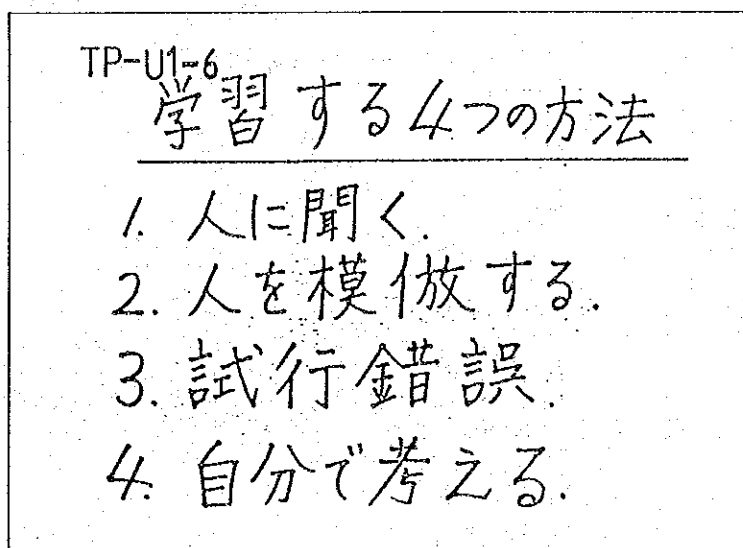 TP-U1-6
学習する4つの方法
1. 人に聞く.
2. 人を模倣する.
3. 試行錯誤.
4. 自分で考える.